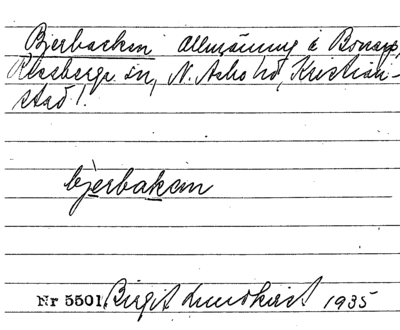 Bjerbacken Allmänning å Bonarp,
Riseberga sn, N. Åsbo hd, Kristian-
stad l.
bjerbakan
Nr 5501. Birgit Lundkvist 1935